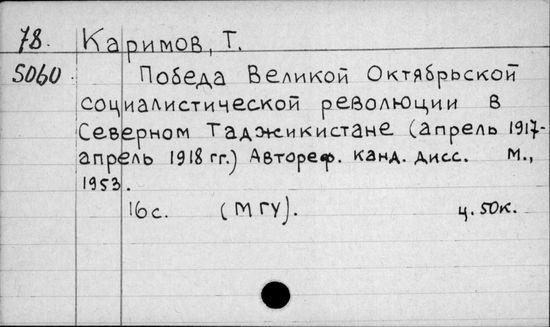 78. Каримов, Т.
5060. Победа Великой Октябрьской
социалистической революции в
Северном Таджикистане (апрель 1917-
апрель 1918 гг.) Автореф. канд. дисс. М.,
1953.
16 с. (МГУ). ц. 50к.